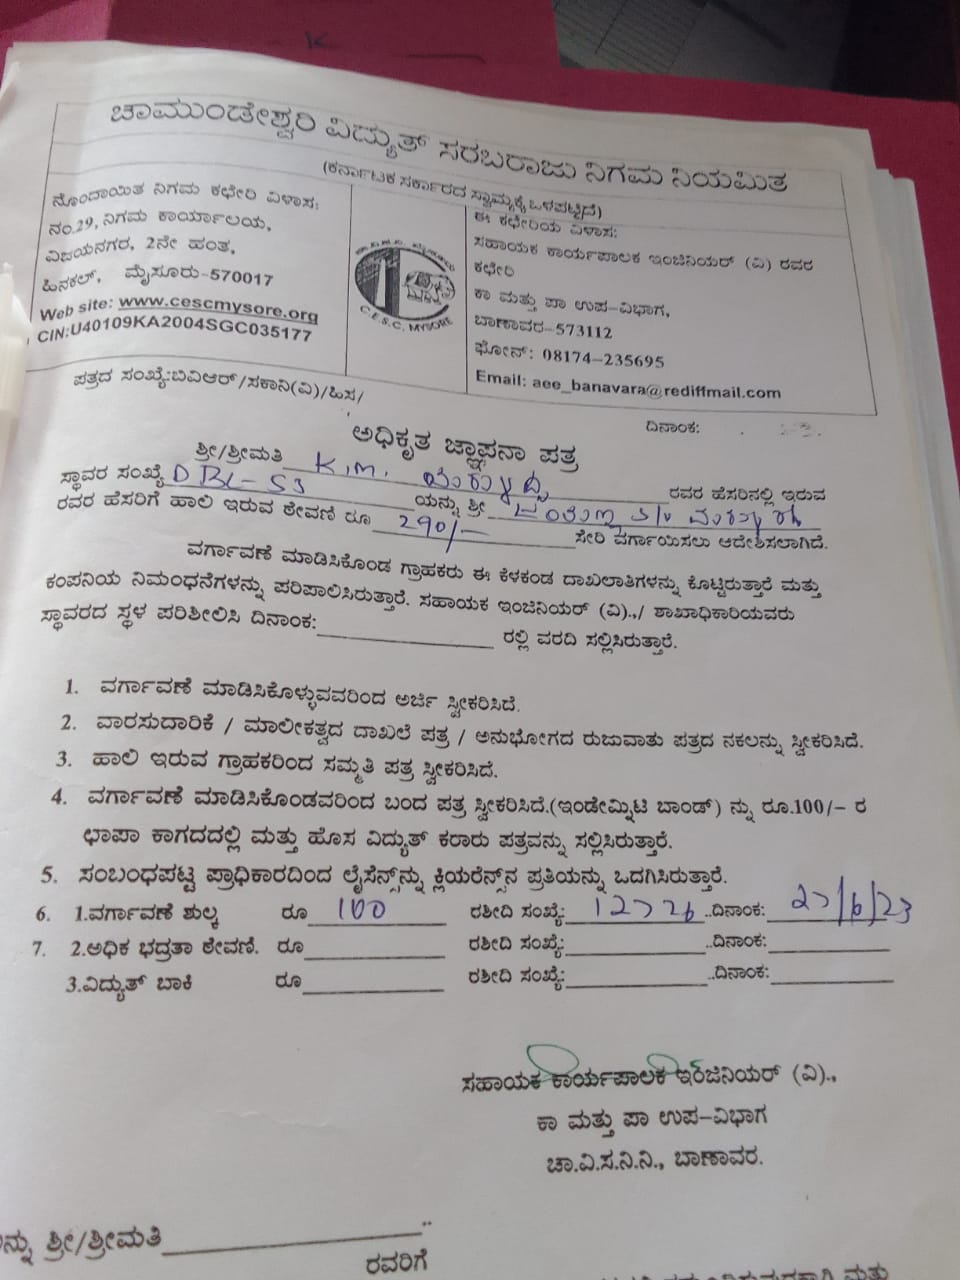 ಚಾಮುಂಡೇಶ್ವರಿ ವಿದ್ಯುತ್ ಸರಬರಾಜು ನಿಗಮ ನಿಯಮಿತ
(ಕರ್ನಾಟಕ ಸರ್ಕಾರದ ಸ್ವಾಮ್ಯಕ್ಕೆ ಒಳಪಟ್ಟಿದೆ)
ನೊಂದಾಯಿತ ನಿಗಮ ಕಛೇರಿ ವಿಳಾಸ:
ನಂ.29, ನಿಗಮ ಕಾರ್ಯಾಲಯ,
ವಿಜಯನಗರ, 2ನೇ ಹಂತ,
ಹಿನಕಲ್, ಮೈಸೂರು-570017
Web site: www.cescmysore.org
CIN:U40109KA2004SGC035177
C.E.S.C. MYSORE
ಈ ಕಛೇರಿಯ ವಿಳಾಸ:
ಸಹಾಯಕ ಕಾರ್ಯಪಾಲಕ ಇಂಜಿನಿಯರ್ (ವಿ) ರವರ
ಕಛೇರಿ
ಕಾ ಮತ್ತು ಪಾ ಉಪ-ವಿಭಾಗ,
ಬಾಣಾವರ-573112
ಫೋನ್: 08174-235695
Email: aee_banavara@rediffmail.com
ಪತ್ರದ ಸಂಖ್ಯೆ:ಬಿವಿಆರ್/ಸಕಾನಿ(ವಿ)/ಹಿಸ/
ದಿನಾಂಕ:
ಅಧಿಕೃತ ಜ್ಞಾಪನಾ ಪತ್ರ
ಶ್ರೀ/ಶ್ರೀಮತಿ K.M.
ಸ್ಥಾವರ ಸಂಖ್ಯೆ DBL-53 ರವರ ಹೆಸರಿನಲ್ಲಿ ಇರುವ
ಯನ್ನು ಶ್ರೀ S/o
ರವರ ಹೆಸರಿಗೆ ಹಾಲಿ ಇರುವ ಠೇವಣಿ ರೂ 290/- ಸೇರಿ ವರ್ಗಾಯಿಸಲು ಆದೇಶಿಸಲಾಗಿದೆ.
ವರ್ಗಾವಣೆ ಮಾಡಿಸಿಕೊಂಡ ಗ್ರಾಹಕರು ಈ ಕೆಳಕಂಡ ದಾಖಲಾತಿಗಳನ್ನು ಕೊಟ್ಟಿರುತ್ತಾರೆ ಮತ್ತು
ಕಂಪನಿಯ ನಿಮಂಧನೆಗಳನ್ನು ಪರಿಪಾಲಿಸಿರುತ್ತಾರೆ. ಸಹಾಯಕ ಇಂಜಿನಿಯರ್ (ವಿ).,/ ಶಾಖಾಧಿಕಾರಿಯವರು
ಸ್ಥಾವರದ ಸ್ಥಳ ಪರಿಶೀಲಿಸಿ ದಿನಾಂಕ: ರಲ್ಲಿ ವರದಿ ಸಲ್ಲಿಸಿರುತ್ತಾರೆ.
1. ವರ್ಗಾವಣೆ ಮಾಡಿಸಿಕೊಳ್ಳುವವರಿಂದ ಅರ್ಜಿ ಸ್ವೀಕರಿಸಿದೆ.
2. ವಾರಸುದಾರಿಕೆ / ಮಾಲೀಕತ್ವದ ದಾಖಲೆ ಪತ್ರ / ಅನುಭೋಗದ ರುಜುವಾತು ಪತ್ರದ ನಕಲನ್ನು ಸ್ವೀಕರಿಸಿದೆ.
3. ಹಾಲಿ ಇರುವ ಗ್ರಾಹಕರಿಂದ ಸಮ್ಮತಿ ಪತ್ರ ಸ್ವೀಕರಿಸಿದೆ.
4. ವರ್ಗಾವಣೆ ಮಾಡಿಸಿಕೊಂಡವರಿಂದ ಬಂದ ಪತ್ರ ಸ್ವೀಕರಿಸಿದೆ.(ಇಂಡೇಮ್ನಿಟಿ ಬಾಂಡ್) ನ್ನು ರೂ.100/- ರ
ಛಾಪಾ ಕಾಗದದಲ್ಲಿ ಮತ್ತು ಹೊಸ ವಿದ್ಯುತ್ ಕರಾರು ಪತ್ರವನ್ನು ಸಲ್ಲಿಸಿರುತ್ತಾರೆ.
5. ಸಂಬಂಧಪಟ್ಟ ಪ್ರಾಧಿಕಾರದಿಂದ ಲೈಸೆನ್ಸ್‌ನ್ನು ಕ್ಲಿಯರೆನ್ಸ್‌ನ ಪ್ರತಿಯನ್ನು ಒದಗಿಸಿರುತ್ತಾರೆ.
6. 1.ವರ್ಗಾವಣೆ ಶುಲ್ಕ ರೂ 100 ರಶೀದಿ ಸಂಖ್ಯೆ: 12726 ..ದಿನಾಂಕ: 27/6/23
7. 2.ಅಧಿಕ ಭದ್ರತಾ ಠೇವಣಿ. ರೂ ರಶೀದಿ ಸಂಖ್ಯೆ: ..ದಿನಾಂಕ:
3.ವಿದ್ಯುತ್ ಬಾಕಿ ರೂ ರಶೀದಿ ಸಂಖ್ಯೆ: ..ದಿನಾಂಕ:
ಸಹಾಯಕ ಕಾರ್ಯಪಾಲಕ ಇಂಜಿನಿಯರ್ (ವಿ).,
ಕಾ ಮತ್ತು ಪಾ ಉಪ-ವಿಭಾಗ
ಚಾ.ವಿ.ಸ.ನಿ.ನಿ., ಬಾಣಾವರ.
ಶ್ರೀ/ಶ್ರೀಮತಿ
ರವರಿಗೆ
ಮತ್ತು